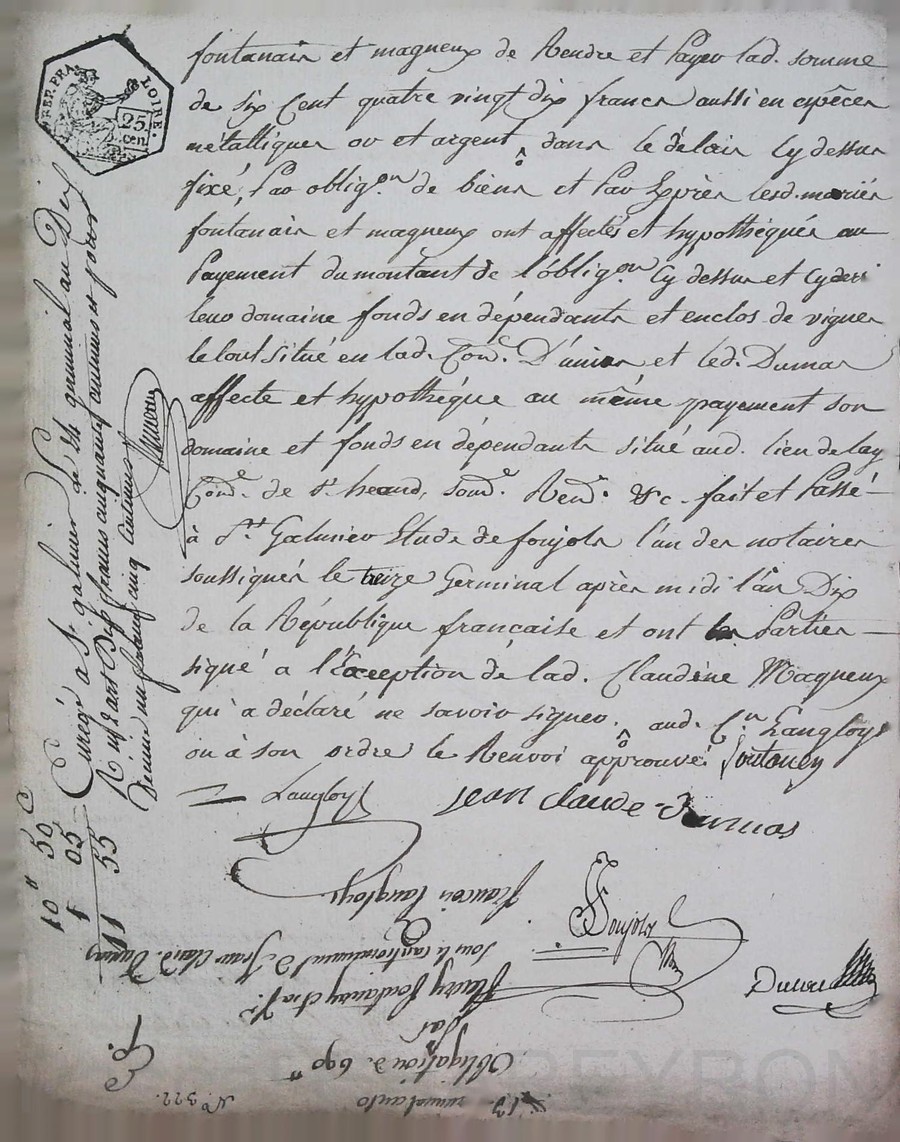 fontanais et magneux de Rendre et Payer lad. somme
de six Cent quatre vingt dix francs aussi en espêces
métalliques or et argent dans le délais cy dessus
fixé, Par oblig.on de biens et Par Exprès lesd. mariés
fontanais et magneux ont affectés et hypothéqués au
Payement du montant de l'oblig.on cy dessus et
leur domaine fonds en dépendants et enclos de vignes
le tout situé en lad. Com.e et led. Dumas
affecte et hypothéque au même payement son
domaine et fonds en dépendants situé aud. lieu de
Com.e de st. heand, Soum. Ren.n &c. fait et Passé
à St. Galmier Etude de foujols l'un des notaires
soussignés le treize Germinal après midi l'an Dix
de la République française et ont les Parties
signé a l'Exception de lad. Claudine Magneux
qui a déclaré ne savoir signer. aud. C.n Langloys
ou à son ordre le Renvoi approuvé. foutanay
Langloys Jean Claude Dumas
francois Langloys
Foujols
Dumas
REP. FRA.
LOIRE.
25
cen.
Enregé a St. galmier le germinal an Dix
R un franc cinquante centimes et pour
Décime cinq centimes
10 " 50 c
1 05
11 55
Obligation de 690 "
Par
fleury foutanay et sa f.e
sous le cautionnement de Jean Claud. Dumas
N.o 322.
13.